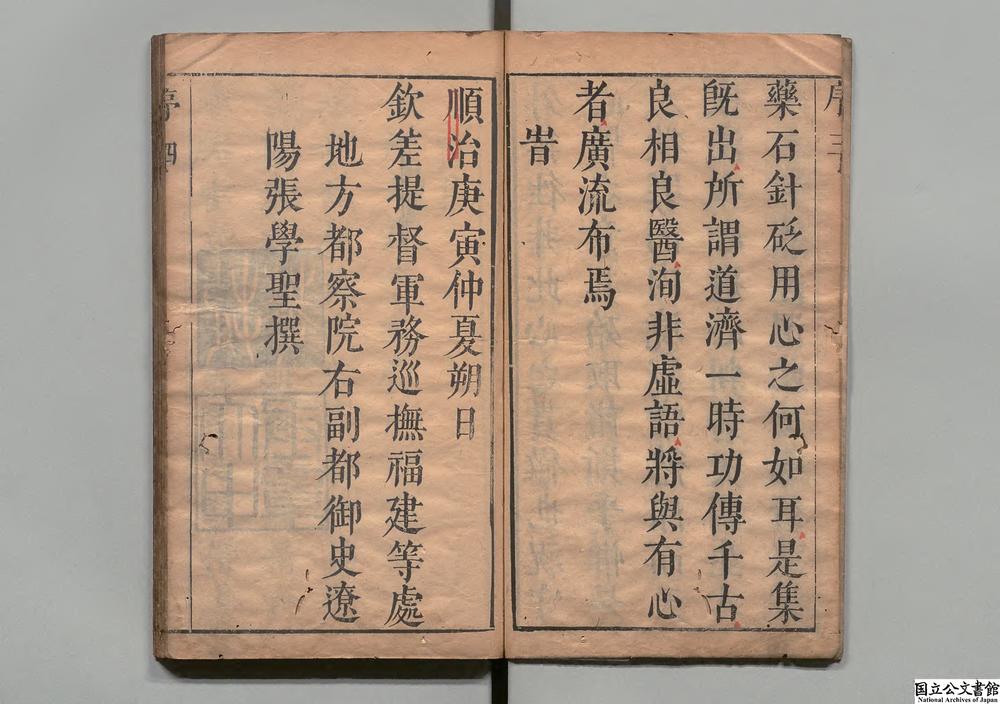 序三
藥石針砭用心之何如耳是集
旣出所謂道濟一時功傳千古
良相良醫洵非虛語將與有心
者廣流布焉
旹
順治庚寅仲夏朔日
欽差提督軍務巡撫福建等處
地方都察院右副都御史遼
陽張學聖撰
序四
国立公文書館
National Archives of Japan